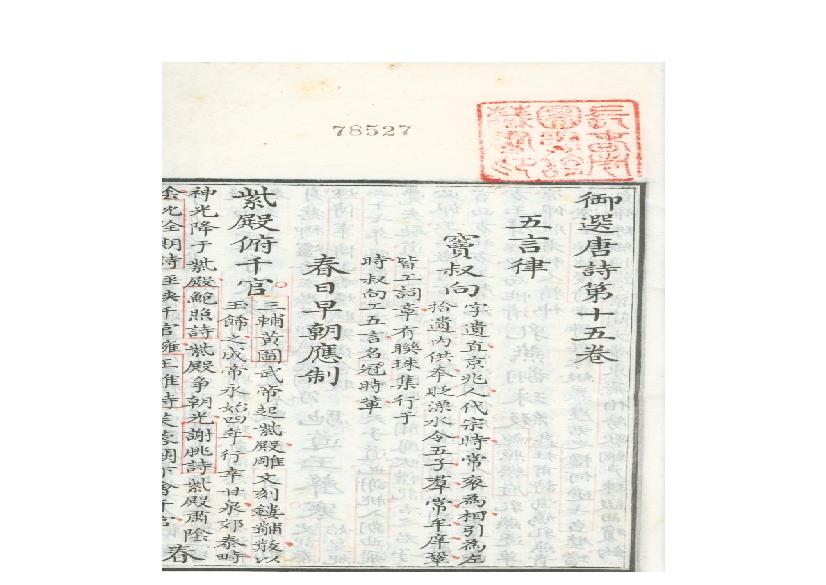 78527
御選唐詩第十五卷
五言律
竇叔向
字遺直京兆人代宗時常袞為相引為左
拾遺內供奉貶溧水令五子羣常牟庠鞏
皆工詞章有聯珠集行于
時叔向工五言名冠時輩
春日早朝應制
紫殿俯千官
三輔黃圖武帝起紫殿雕文刻鏤黼黻以
玉飾之成帝永始四年行幸甘泉郊泰畤
神光降于紫殿鮑照詩紫殿爭朝光謝朓詩紫殿肅陰
陰沈佺期詩
千官
王維詩
春